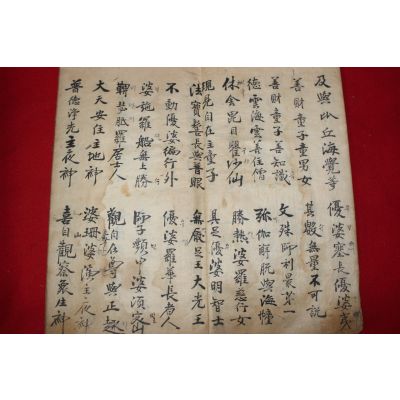 及與比丘海覺等 優婆塞長優婆夷
善財童子童男女 其數無量不可說
善財童子善知識 文殊師利最第一
德雲海雲善住僧 弥伽解脫與海幢
休舍毘目瞿沙仙 勝熱婆羅慈行女
現見自在主童子 具足優婆明智士
法寶髻長與普眼 無厭足王大光王
不動優婆徧行外 優婆羅華長者人
婆施羅船無上勝 師子頻申婆須密
鞞瑟胝羅居士人 觀自在尊與正趣
大天安住主地神 婆珊婆演主夜神
普德淨光主夜神 喜目觀察衆生神